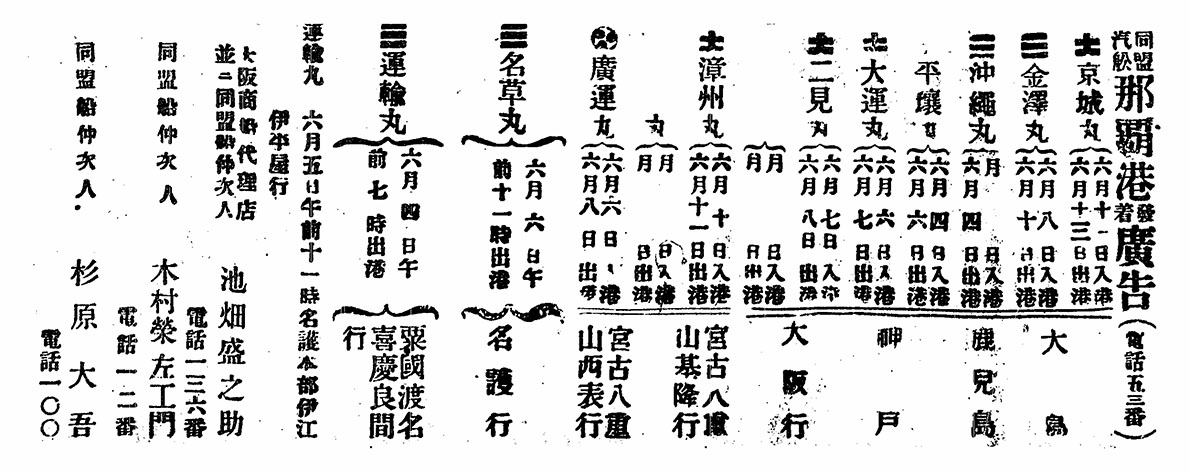 同盟汽船那覇港發着廣告(電話五三番)
京城丸 六月十一日入港 六月十三日出港
金澤丸 六月八日入港 六月十日出港
沖繩丸 月 日入港 六月四日出港
平壤丸 六月四日入港 六月六日出港
大運丸 六月六日入港 六月七日出港
二見丸 六月七日入港 六月八日出港
月 日入港 月 日出港
大島 鹿兒島 神戸 大阪行
漳州丸 六月十日入港 六月十一日出港
丸 月 日入港 月 日出港
宮古八重山基隆行
廣運丸 六月六日入港 六月八日出港
宮古八重山西表行
名草丸 六月六日午前十一時出港 名護行
運輸丸 六月四日午前七時出港 粟國渡名喜慶良間行
運輸丸 六月五日午前十一時名護本部伊江伊平屋行
大阪商船代理店並ニ同盟船仲次人 池畑盛之助
電話一三六番
同盟船仲次人 木村榮左工門
電話一二番
同盟船仲次人. 杉原大吾
電話一〇〇